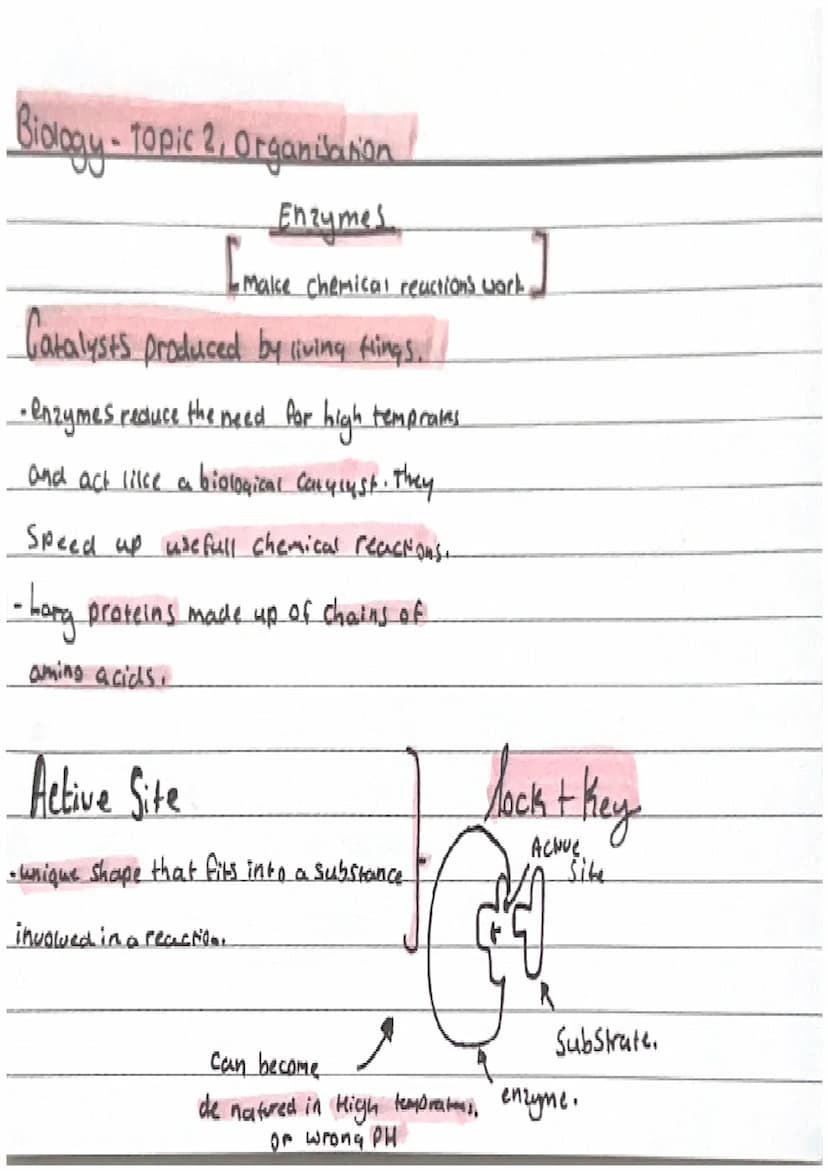 Biology - Topic 2, Organisation
Enzymes
[Make chemical reactions work]
Catalysts produced by living things.
• enzymes reduce the need for high temprates
and act like a biological catylyst. They
speed up usefull chemical reactions.
- Long proteins made up of chains of
amino acids.
Active Site
• unique shape that fits into a substance
involved in a reaction.
lock + key
Active
Site
+
Substrate.
enzyme.
Can become
de natured in High temprates,
or wrong PH